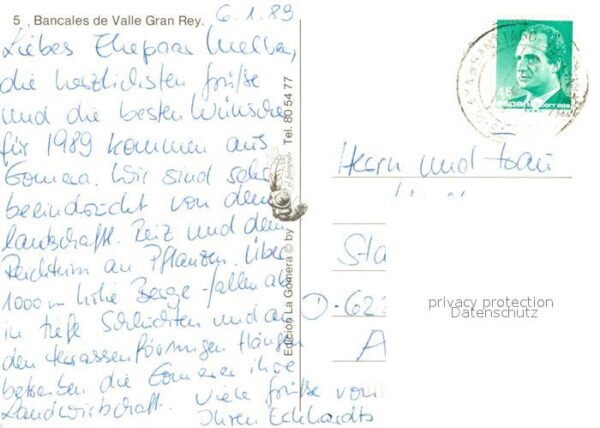 5 Bancales de Valle Gran Rey.
6.1.89
Liebes Ehepaar
die herzlichsten Grüße
und die besten Wünsche
für 1989 kommen aus
Gomera. Wir sind sehr
beeindruckt von dem
landschaftl. Reiz und dem
Reichtum an Pflanzen. Über
1000 m hohe Berge fallen ab
in tiefe Schluchten und an
den terrassenförmigen Hängen
betreiben die Gomerer ihre
Landwirtschaft. Viele Grüße von
Ihren Eckhardts
Edición La Gomera © by
Tel. 80 54 77
España
Herrn und Frau
Sta
D-62
A
privacy protection
Datenschutz